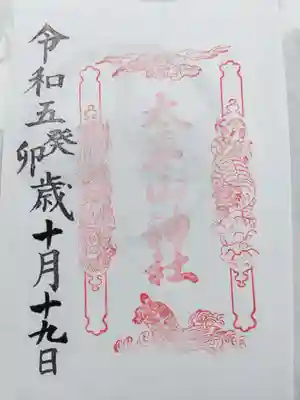 神社
令和五癸卯歳十月十九日